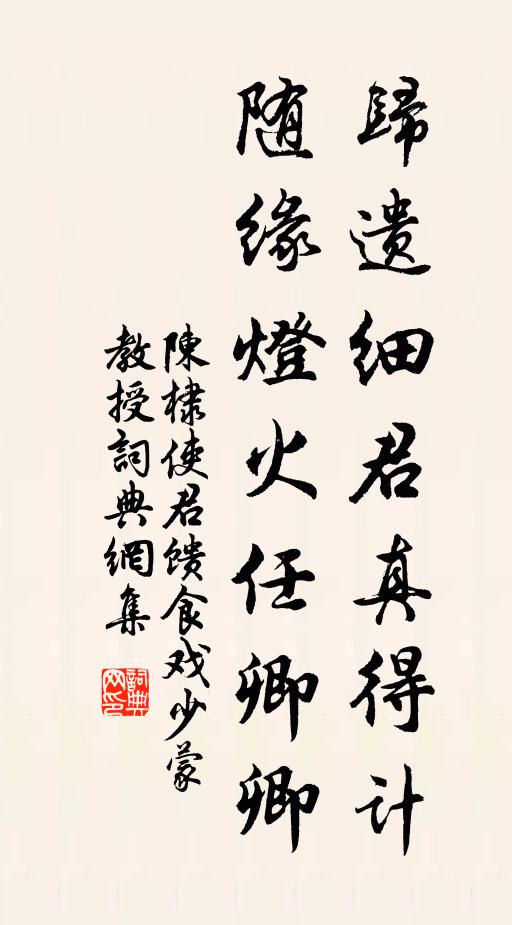 歸遗细君真得计
随缘燈火任卿卿
陳棣使君馈食戏少蒙
教授詞典網集
詞典网印